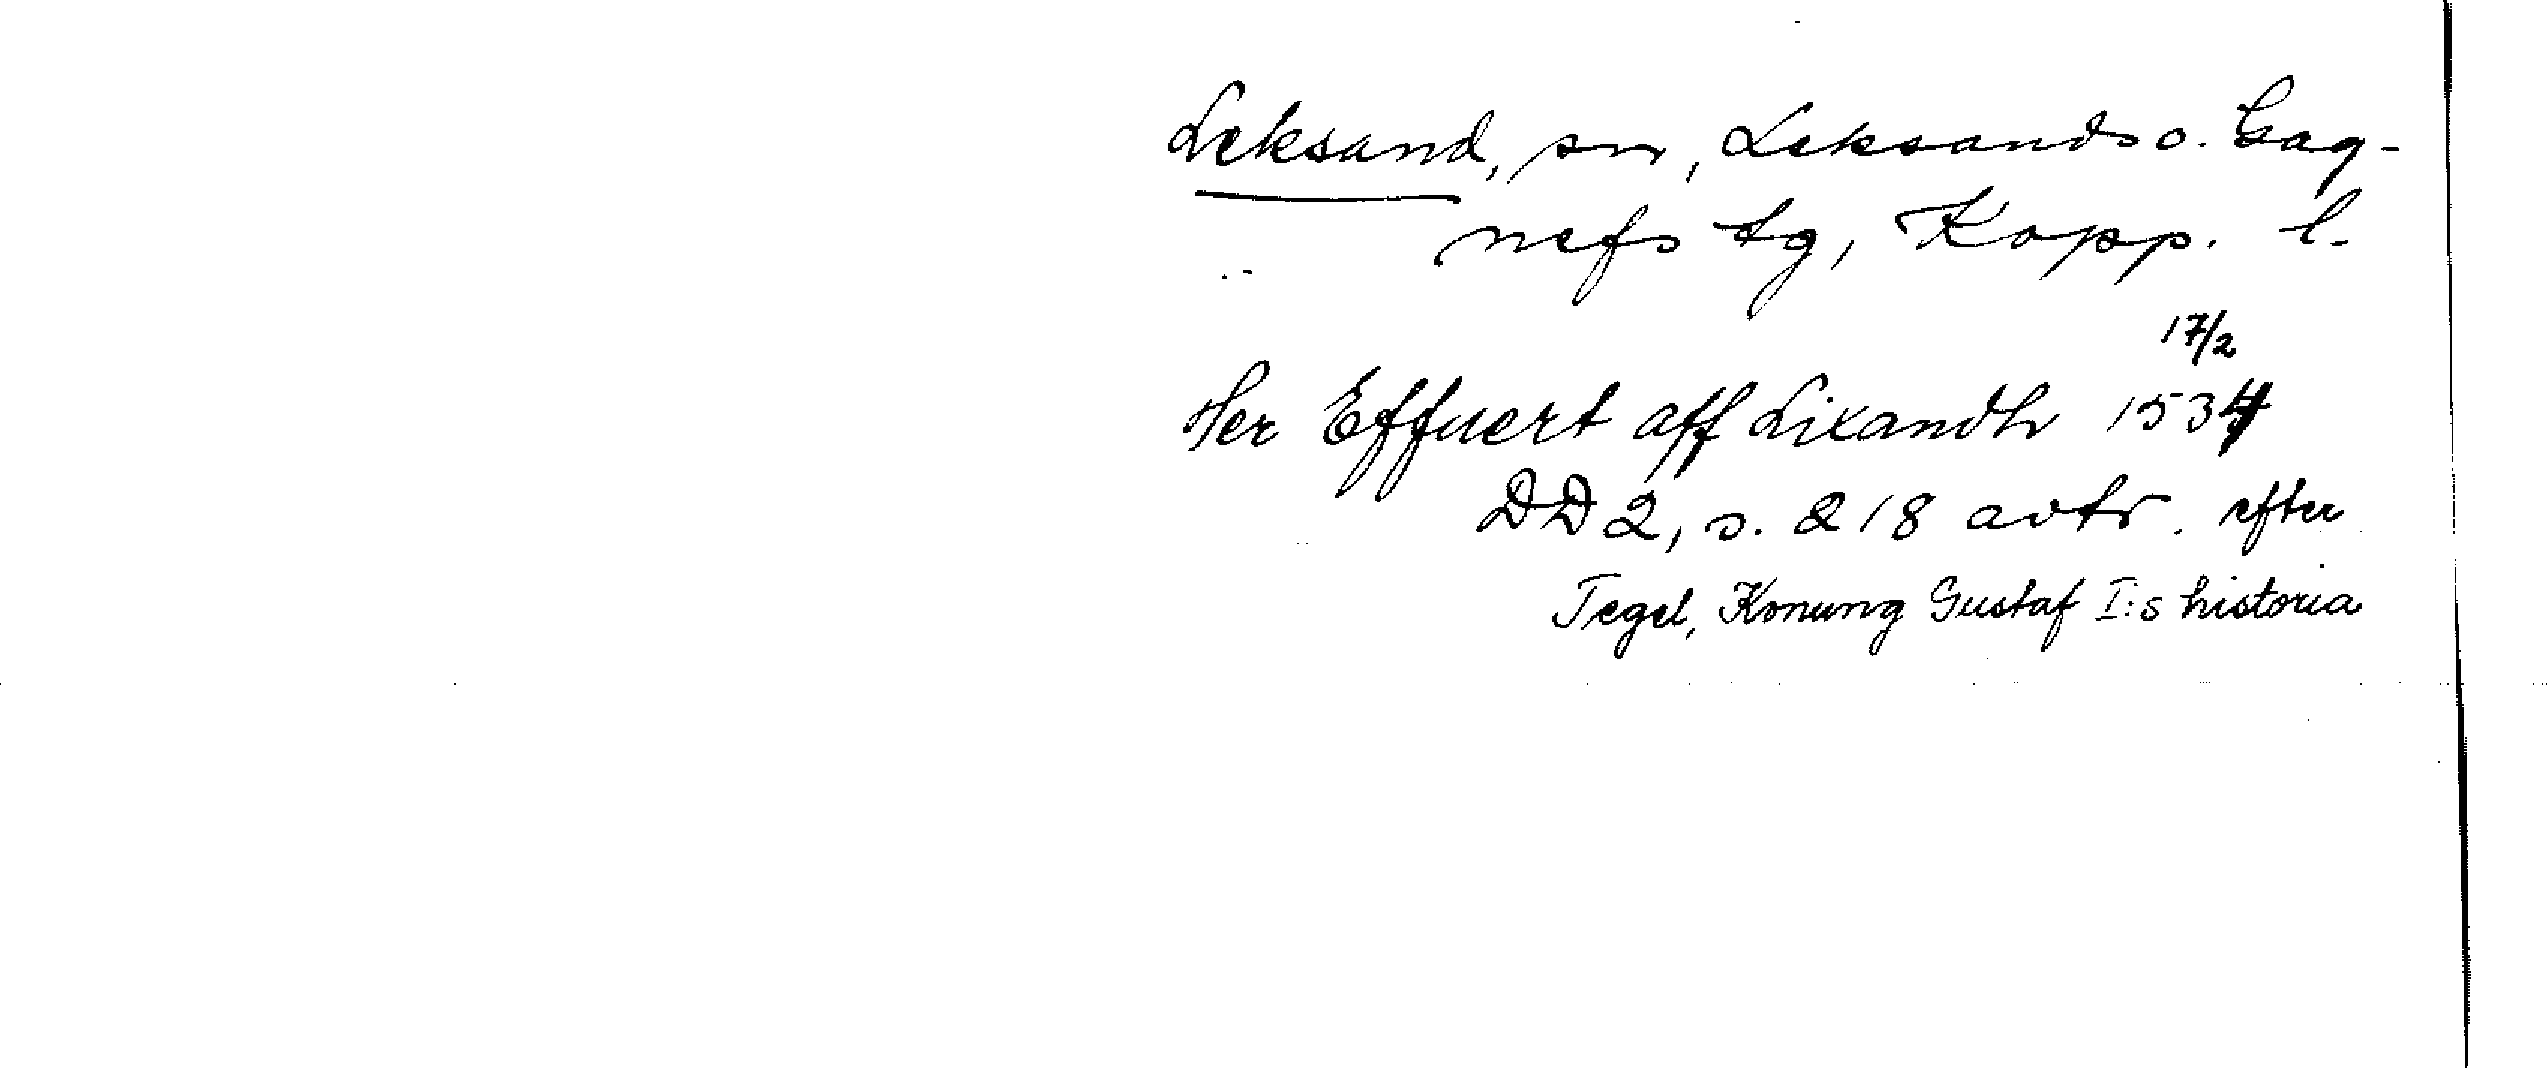 Leksand, sn, Leksands o. Gag-
nefs tg, Kopp. l.
17/2
Her Effuert aff Lixandh 1534
DD 2, s. 218 avtr. efter
Tegel, Konung Gustaf I:s historia